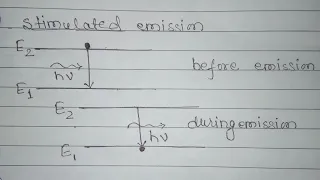 stimulated emission
E2
hν
before emission
E1
E2
hν
during emission
E1